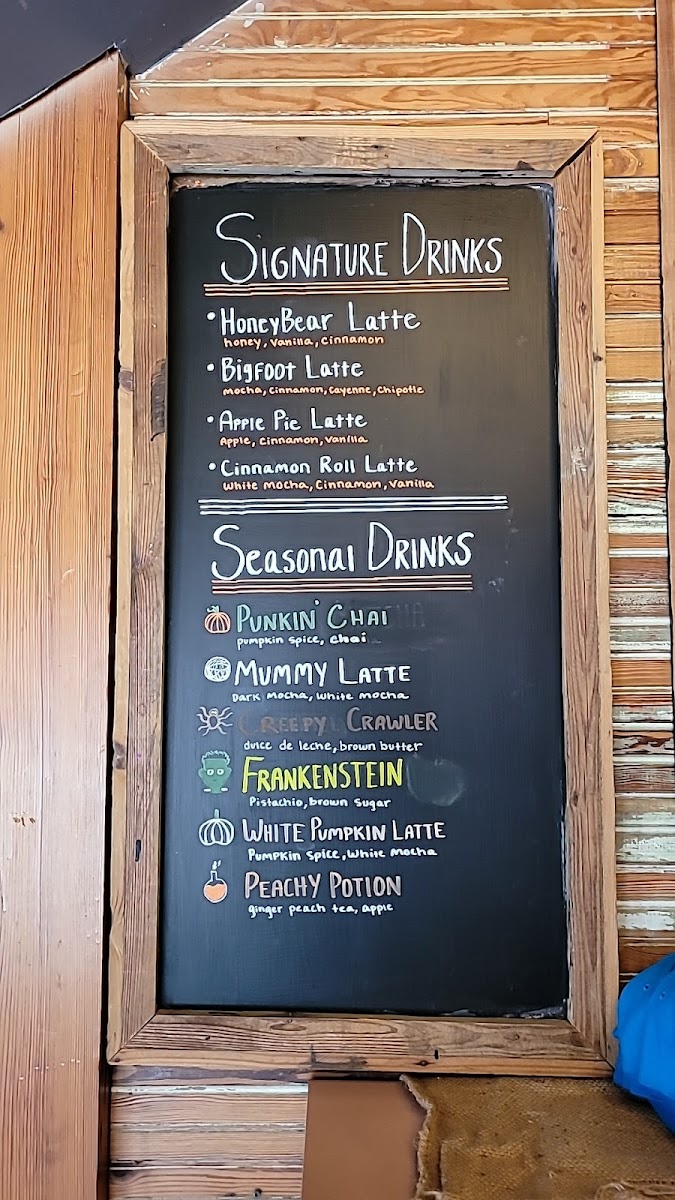 SIGNATURE DRINKS
• HoneyBear Latte
honey, vanilla, cinnamon
• Bigfoot Latte
mocha, cinnamon, cayenne, chipotle
• Apple Pie Latte
Apple, cinnamon, vanilla
• Cinnamon Roll Latte
white mocha, cinnamon, vanilla
Seasonal DRINKS
PUNKIN' CHAI
pumpkin spice, chai
MUMMY LATTE
Dark mocha, white mocha
CREEPY CRAWLER
dulce de leche, brown butter
FRANKENSTEIN
Pistachio, brown sugar
WHITE PUMPKIN LATTE
Pumpkin spice, white mocha
PEACHY POTION
ginger peach tea, apple